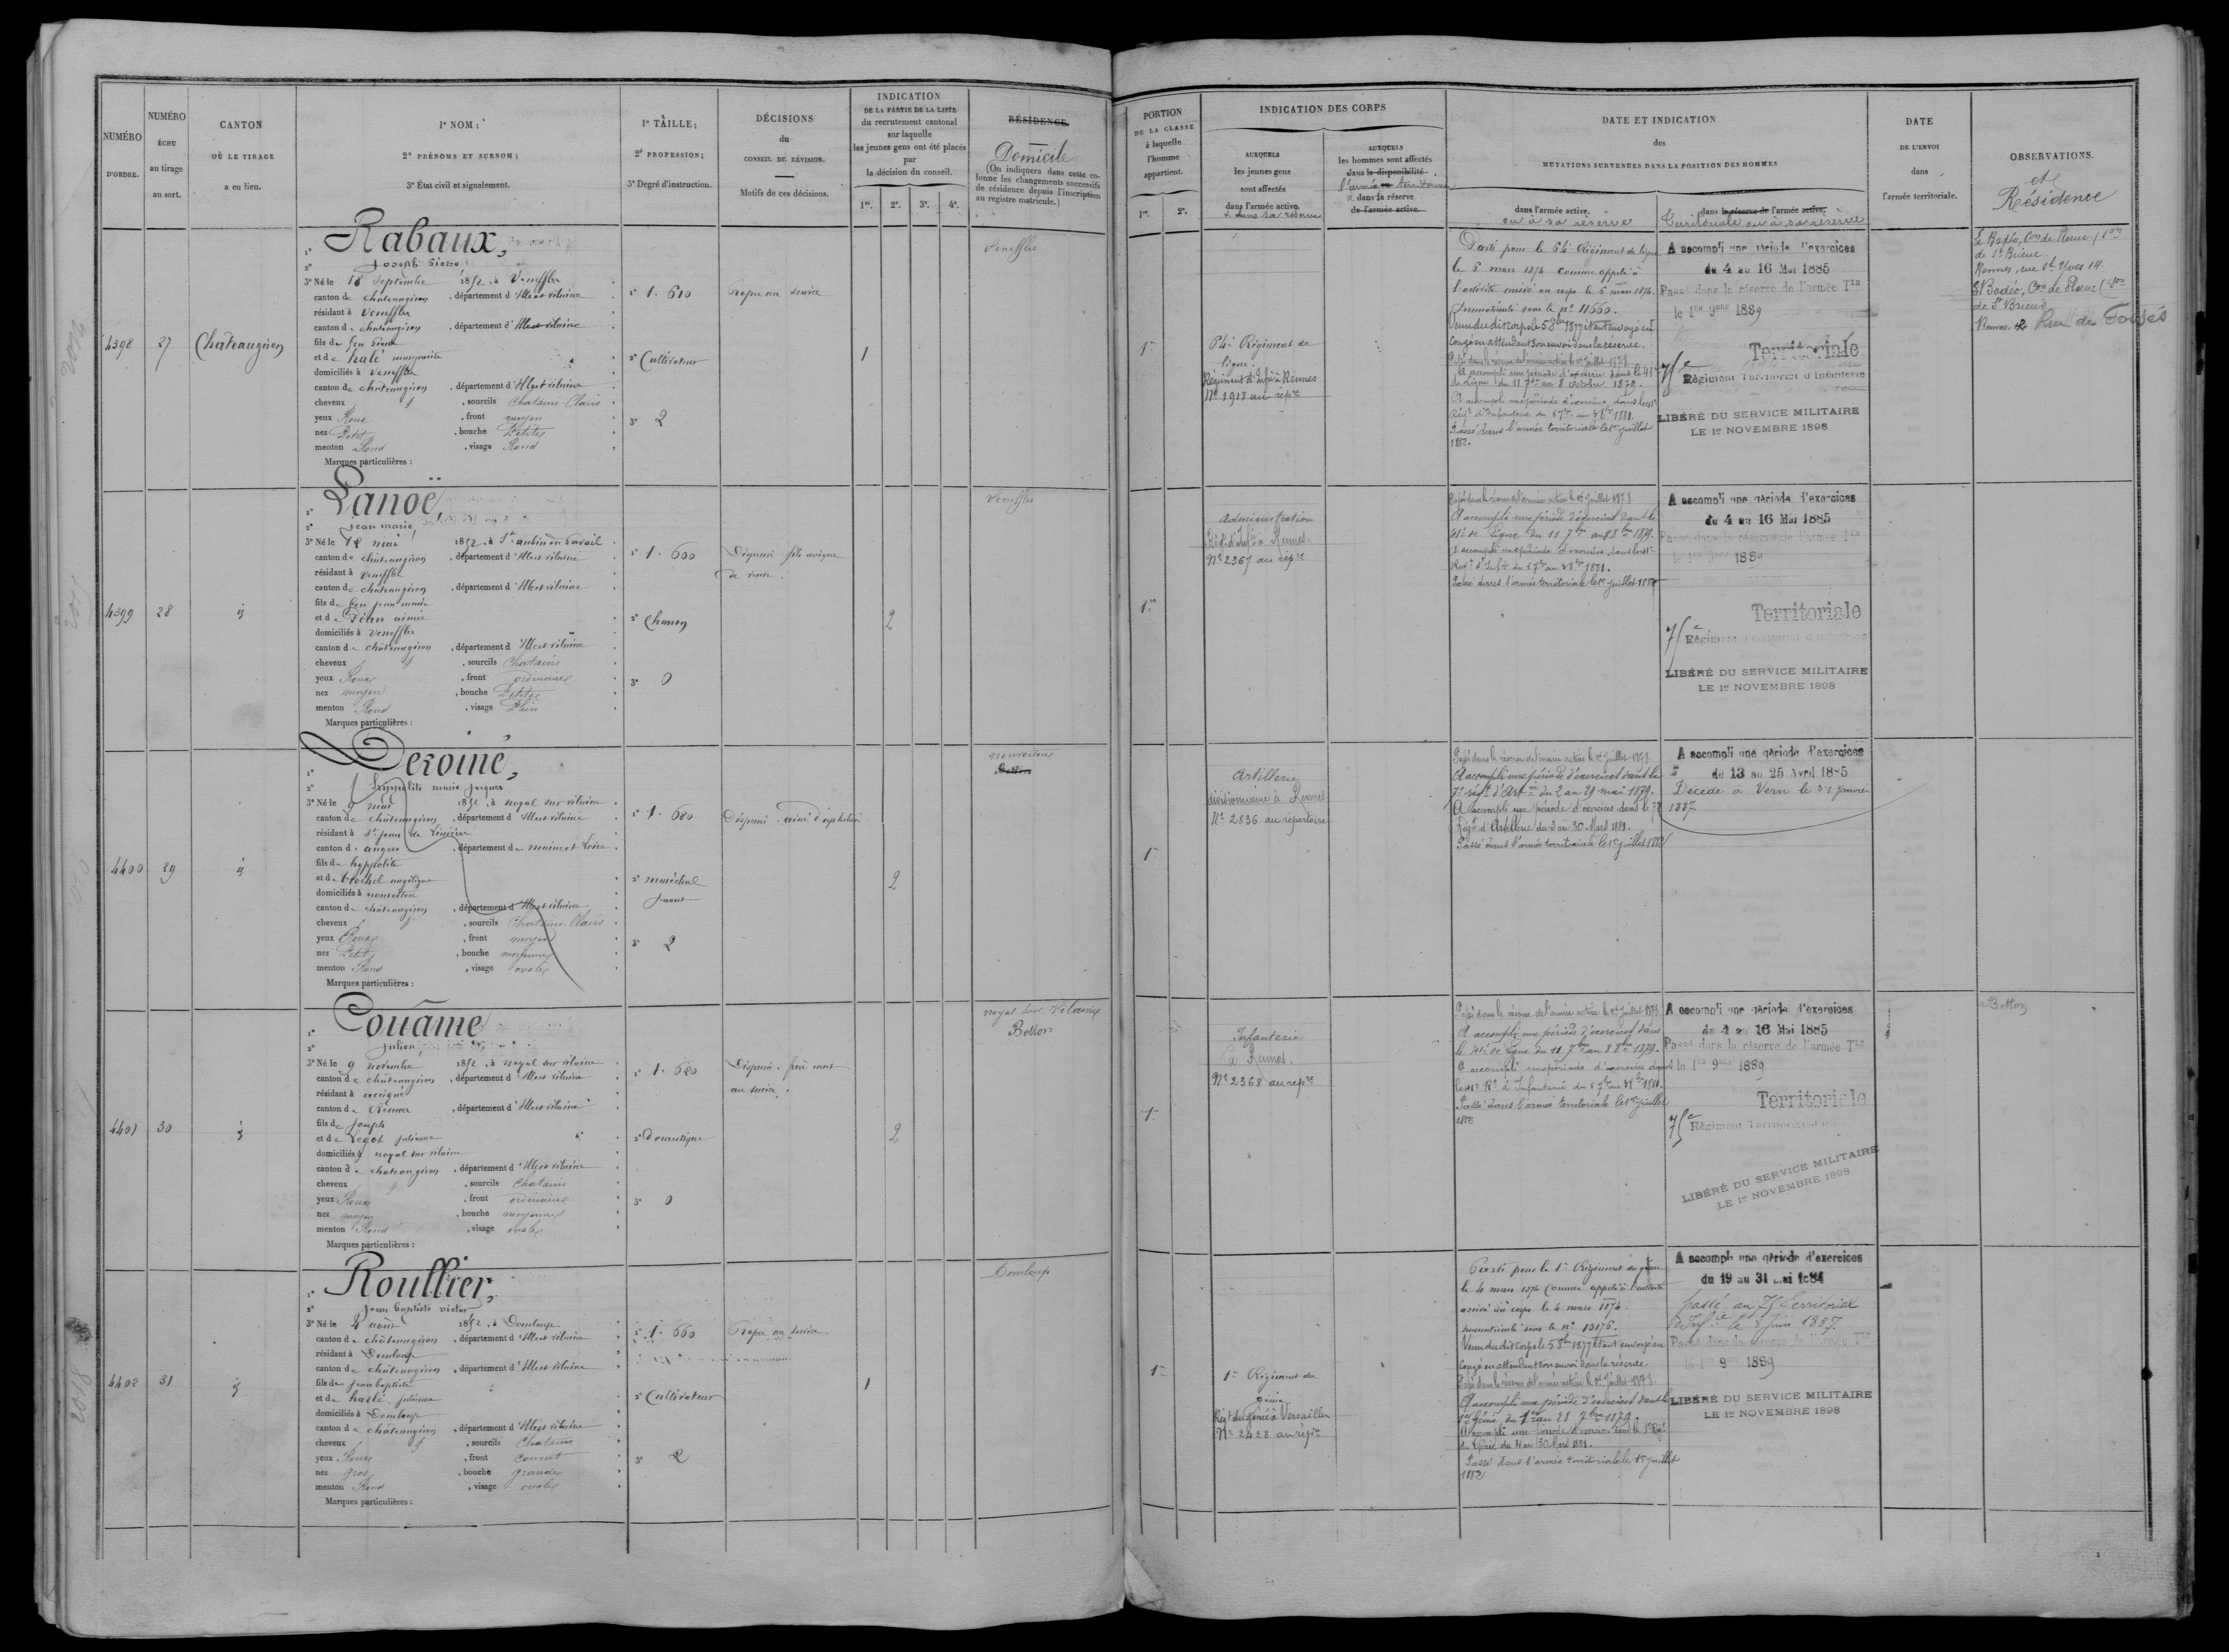 NUMÉRO D'ORDRE.
NUMÉRO ÉCHU au tirage au sort.
CANTON OÙ LE TIRAGE a eu lieu.
1° NOM;
2° PRÉNOMS ET SURNOM;
3° État civil et signalement.
1° TAILLE;
2° PROFESSION;
3° Degré d'instruction.
DÉCISIONS du CONSEIL DE RÉVISION.
Motifs de ces décisions.
INDICATION
DE LA PARTIE DE LA LISTE
du recrutement cantonal
sur laquelle
les jeunes gens ont été placés
par
la décision du conseil.
1re. 2e. 3e. 4e.
RÉSIDENCE.
Domicile
(On indiquera dans cette co-
lonne les changements successifs
de résidence depuis l'inscription
au registre matricule.)
PORTION
DE LA CLASSE
à laquelle
l'homme
appartient.
1re. 2e.
INDICATION DES CORPS
AUXQUELS
les jeunes gens
sont affectés
dans l'armée active.
& dans sa réserve
AUXQUELS
les hommes sont affectés
dans la disponibilité
l'armée ou territoriale
& dans la réserve
de l'armée active.
DATE ET INDICATION
des
MUTATIONS SURVENUES DANS LA POSITION DES HOMMES
dans l'armée active.
ou à sa réserve
dans la réserve de l'armée active.
Territoriale ou à sa réserve
DATE
DE L'ENVOI
dans
l'armée territoriale.
OBSERVATIONS.
et
Résidence
4398
27
Chateaugiron
1° Rabaux,
2° Joseph Pierre
3° Né le 18 septembre 1852, à Veneffles
canton de chateaugiron, département d'Ille et vilaine
résidant à Veneffles
canton de chateaugiron, département d'Ille et vilaine
fils de feu Pierre
et de
domiciliés à Veneffles
canton de chateaugiron, département d'Ille et vilaine
cheveux, sourcils Chatains Clairs
yeux Roux, front moyen
nez Petit, bouche Petite
menton Rond, visage Rond
Marques particulières :
1° 1.610
2° Cultivateur
3° 2
Propre au service
1
Veneffles
1re
64e Régiment de
ligne.
Régiment d'Infie à Rennes
No 1918 au répre
Parti pour le 64e Régiment de ligne
le 6 mars 1874 comme appelé à
l'activité arrivé au corps le 6 mars 1874.
Immatriculé sous le no 11660.
Venu du dit corps le 5 8bre 1877 étant envoyé en
congé en attendant son envoi dans la réserve.
Passé dans la réserve de l'armée active le 1er juillet 1878.
A accompli une période d'exercice dans le 41e
de Ligne du 11 7bre au 8 octobre 1879.
A accompli une période d'exercice, dans le 41e
Régt d'Infanterie du 5 7bre au 3 8bre 1881.
Passé dans l'armée territoriale le 1er juillet
1882.
A accompli une période d'exercices
du 4 au 16 Mai 1885
Passé dans la réserve de l'armée Tle
le 1er 9bre 1889
Territoriale
75e Régiment Territorial d'Infanterie
LIBÉRÉ DU SERVICE MILITAIRE
LE 1er NOVEMBRE 1898
Le Bodéo, Con de Ploeuc
de St Brieuc
Rennes, rue St Yves 14
Le Bodéo, Con de Ploeuc
de St Brieuc
Rennes, Rue des Fossés
4399
28
id
1° Lanoë,
2° jean marie
3° Né le 12 mai 1852, à St aubin du Pavail
canton de chateaugiron, département d'Ille et vilaine
résidant à Veneffles
canton de chateaugiron, département d'Ille et vilaine
fils de feu jean marie
et de
domiciliés à Veneffles
canton de chateaugiron, département d'Ille et vilaine
cheveux, sourcils Chatains
yeux Roux, front ordinaire
nez moyen, bouche Petite
menton Rond, visage Plein
Marques particulières :
1° 1.600
2°
3° 0
Dispensé fils unique
de veuve.
2
Veneffles
1re
Administration
Régt d'Infie à Rennes
No 2367 au répre
Passé dans la réserve de l'armée active le 1er juillet 1878.
A accompli une période d'exercices dans le
41e de Ligne du 11 7bre au 8 8bre 1879.
A accompli une période d'exercice, dans le 41e
Régt d'Infie du 5 7bre au 3 8bre 1881.
Passé dans l'armée territoriale le 1er juillet 1882
A accompli une période d'exercices
du 4 au 16 Mai 1885
Passé dans la réserve de l'armée Tle
le 1er 9bre 1889
Territoriale
75e Régiment
LIBÉRÉ DU SERVICE MILITAIRE
LE 1er NOVEMBRE 1898
4400
29
id
1° Deroiné,
2° hyppolite marie jacques
3° Né le 9 mai 1852, à noyal sur vilaine
canton de châteaugiron, département d'Ille et vilaine
résidant à St jean de Linières
canton d'angers, département de maine et Loire
fils de hyppolite
et de Brochel angélique
domiciliés à nouvoitou
canton de châteaugiron, département d'Ille et vilaine
cheveux, sourcils Chatains Clairs
yeux Roux, front moyen
nez Petit, bouche moyenne
menton Rond, visage ovale
Marques particulières :
1° 1.680
2° maréchal
ferrant
3° 2
Dispensé. ainé d'orphelins
2
nouvoitou
Betton
1re
Artillerie
divisionnaire à Rennes
No 2836 au répertoire
Passé dans la réserve de l'armée active le 1er juillet 1878.
A accompli une période d'exercices dans le
7e régt d'Artie du 2 au 29 mai 1879.
A accompli une période d'exercices dans le 7e
Régt d'Artillerie du 3 au 30 Mars 1881.
Passé dans l'armée territoriale le 1er juillet 1882
A accompli une période d'exercices
du 13 au 25 Avril 1885
Décédé à Vern le 31 janvier
1887
4401
30
id
1° Couâme
2° Julien
3° Né le 9 novembre 1852, à noyal sur vilaine
canton de châteaugiron, département d'Ille et vilaine
résidant à acigné
canton de Rennes, département d'Ille et vilaine
fils de joseph
et de Legot julienne
domiciliés à noyal sur vilaine
canton de chateaugiron, département d'Ille et vilaine
cheveux, sourcils Chatains
yeux Roux, front ordinaire
nez moyen, bouche moyenne
menton Rond, visage ovale
Marques particulières :
1° 1.620
2° Domestique
3° 0
Dispensé. frère mort
au service.
2
noyal sur Vilaine
Betton
1re
Infanterie
à Rennes.
No 2368 au répre
Passé dans la réserve de l'armée active le 1er juillet 1878.
A accompli une période d'exercices dans
le 41e de Ligne du 11 7bre au 8 8bre 1879.
A accompli une période d'exercice dans
le 41e Rt d'Infanterie du 5 7bre au 3 8bre 1881.
Passé dans l'armée territoriale le 1er juillet
1882
A accompli une période d'exercices
du 4 au 16 Mai 1885
Passé dans la réserve de l'armée Tle
le 1er 9bre 1889
Territoriale
75e Régiment Territorial
LIBÉRÉ DU SERVICE MILITAIRE
LE 1er NOVEMBRE 1898
Betton
4402
31
id
1° Roullier,
2° jean baptiste victor
3° Né le 2 août 1852, à Domloup
canton de châteaugiron, département d'Ille et vilaine
résidant à Domloup
canton de châteaugiron, département d'Ille et vilaine
fils de jean baptiste
et de julienne
domiciliés à Domloup
canton de châteaugiron, département d'Ille et vilaine
cheveux, sourcils Chatains
yeux Roux, front Couvert
nez gros, bouche grande
menton Rond, visage ovale
Marques particulières :
1° 1.660
2° Cultivateur
3° 2
Propre au service
1
Domloup
1re
1er Régiment du
génie
Régt du génie à Versailles
No 2428 au répre
Parti pour le 1er Régiment du génie
le 4 mars 1874 Comme appelé à l'activité
arrivé au corps le 4 mars 1874.
immatriculé sous le no 10176.
Venu du dit Corps le 5 8bre 1877 étant envoyé en
congé en attendant son envoi dans la réserve.
Passé dans la réserve de l'armée active le 1er juillet 1878.
A accompli une période d'exercices dans le
1er Génie du 1er au 28 7bre 1879.
A accompli une période d'exercice dans le 1er Régt
du Génie du 4 au 30 Mars 1881.
Passé dans l'armée territoriale le 1er juillet
1882
A accompli une période d'exercices
du 19 au 31 mai 1884
passé au 75e territorial
d'Infie le 5 Juin 1887.
Passé dans la réserve de l'armée Tle
le 1er 9bre 1889
LIBÉRÉ DU SERVICE MILITAIRE
LE 1er NOVEMBRE 1898